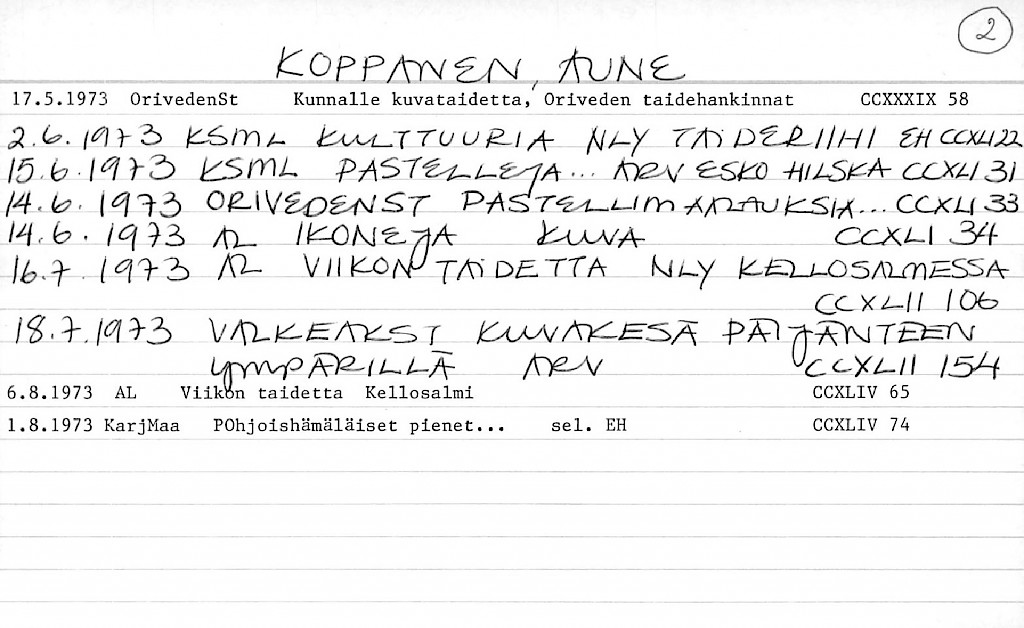 2
KOPPANEN, AUNE
17.5.1973 OrivedenSt Kunnalle kuvataidetta, Oriveden taidehankinnat CCXXXIX 58
2.6.1973 KSML KULTTUURIA NLY TAIDERIIHI EH CCXLI 22
15.6.1973 KSML PASTELLEJA... ARV ESKO HILSKA CCXLI 31
14.6.1973 ORIVEDENST PASTELLIMAALAUKSIA... CCXLI 33
14.6.1973 AL IKONEJA KUVA CCXLI 34
16.7.1973 AL VIIKON TAIDETTA NLY KELLOSALMESSA
CCXLII 106
18.7.1973 VALKEAKST KUVAKESÄ PÄIJÄNTEEN
YMPÄRILLÄ ARV CCXLII 154
6.8.1973 AL Viikon taidetta Kellosalmi CCXLIV 65
1.8.1973 KarjMaa POhjoishämäläiset pienet... sel. EH CCXLIV 74